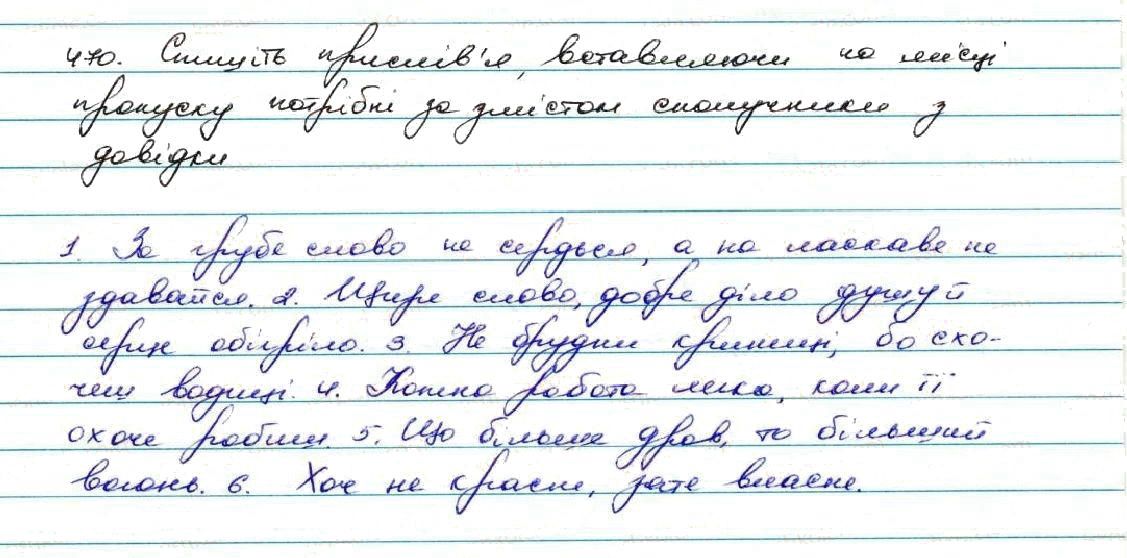 470. Спишіть прислів'я, вставляючи на місці
пропуску потрібні за змістом сполучники з
довідки
1. За грубе слово не сердься, а на ласкаве не
здавайся. 2. Щире слово, добре діло душу й
серце обігріло. 3. Не брудни криниці, бо схо-
чеш водиці. 4. Кожна робота легка, коли її
охоче робиш. 5. Що більше дров, то більший
вогонь. 6. Хоч не красне, зате власне.